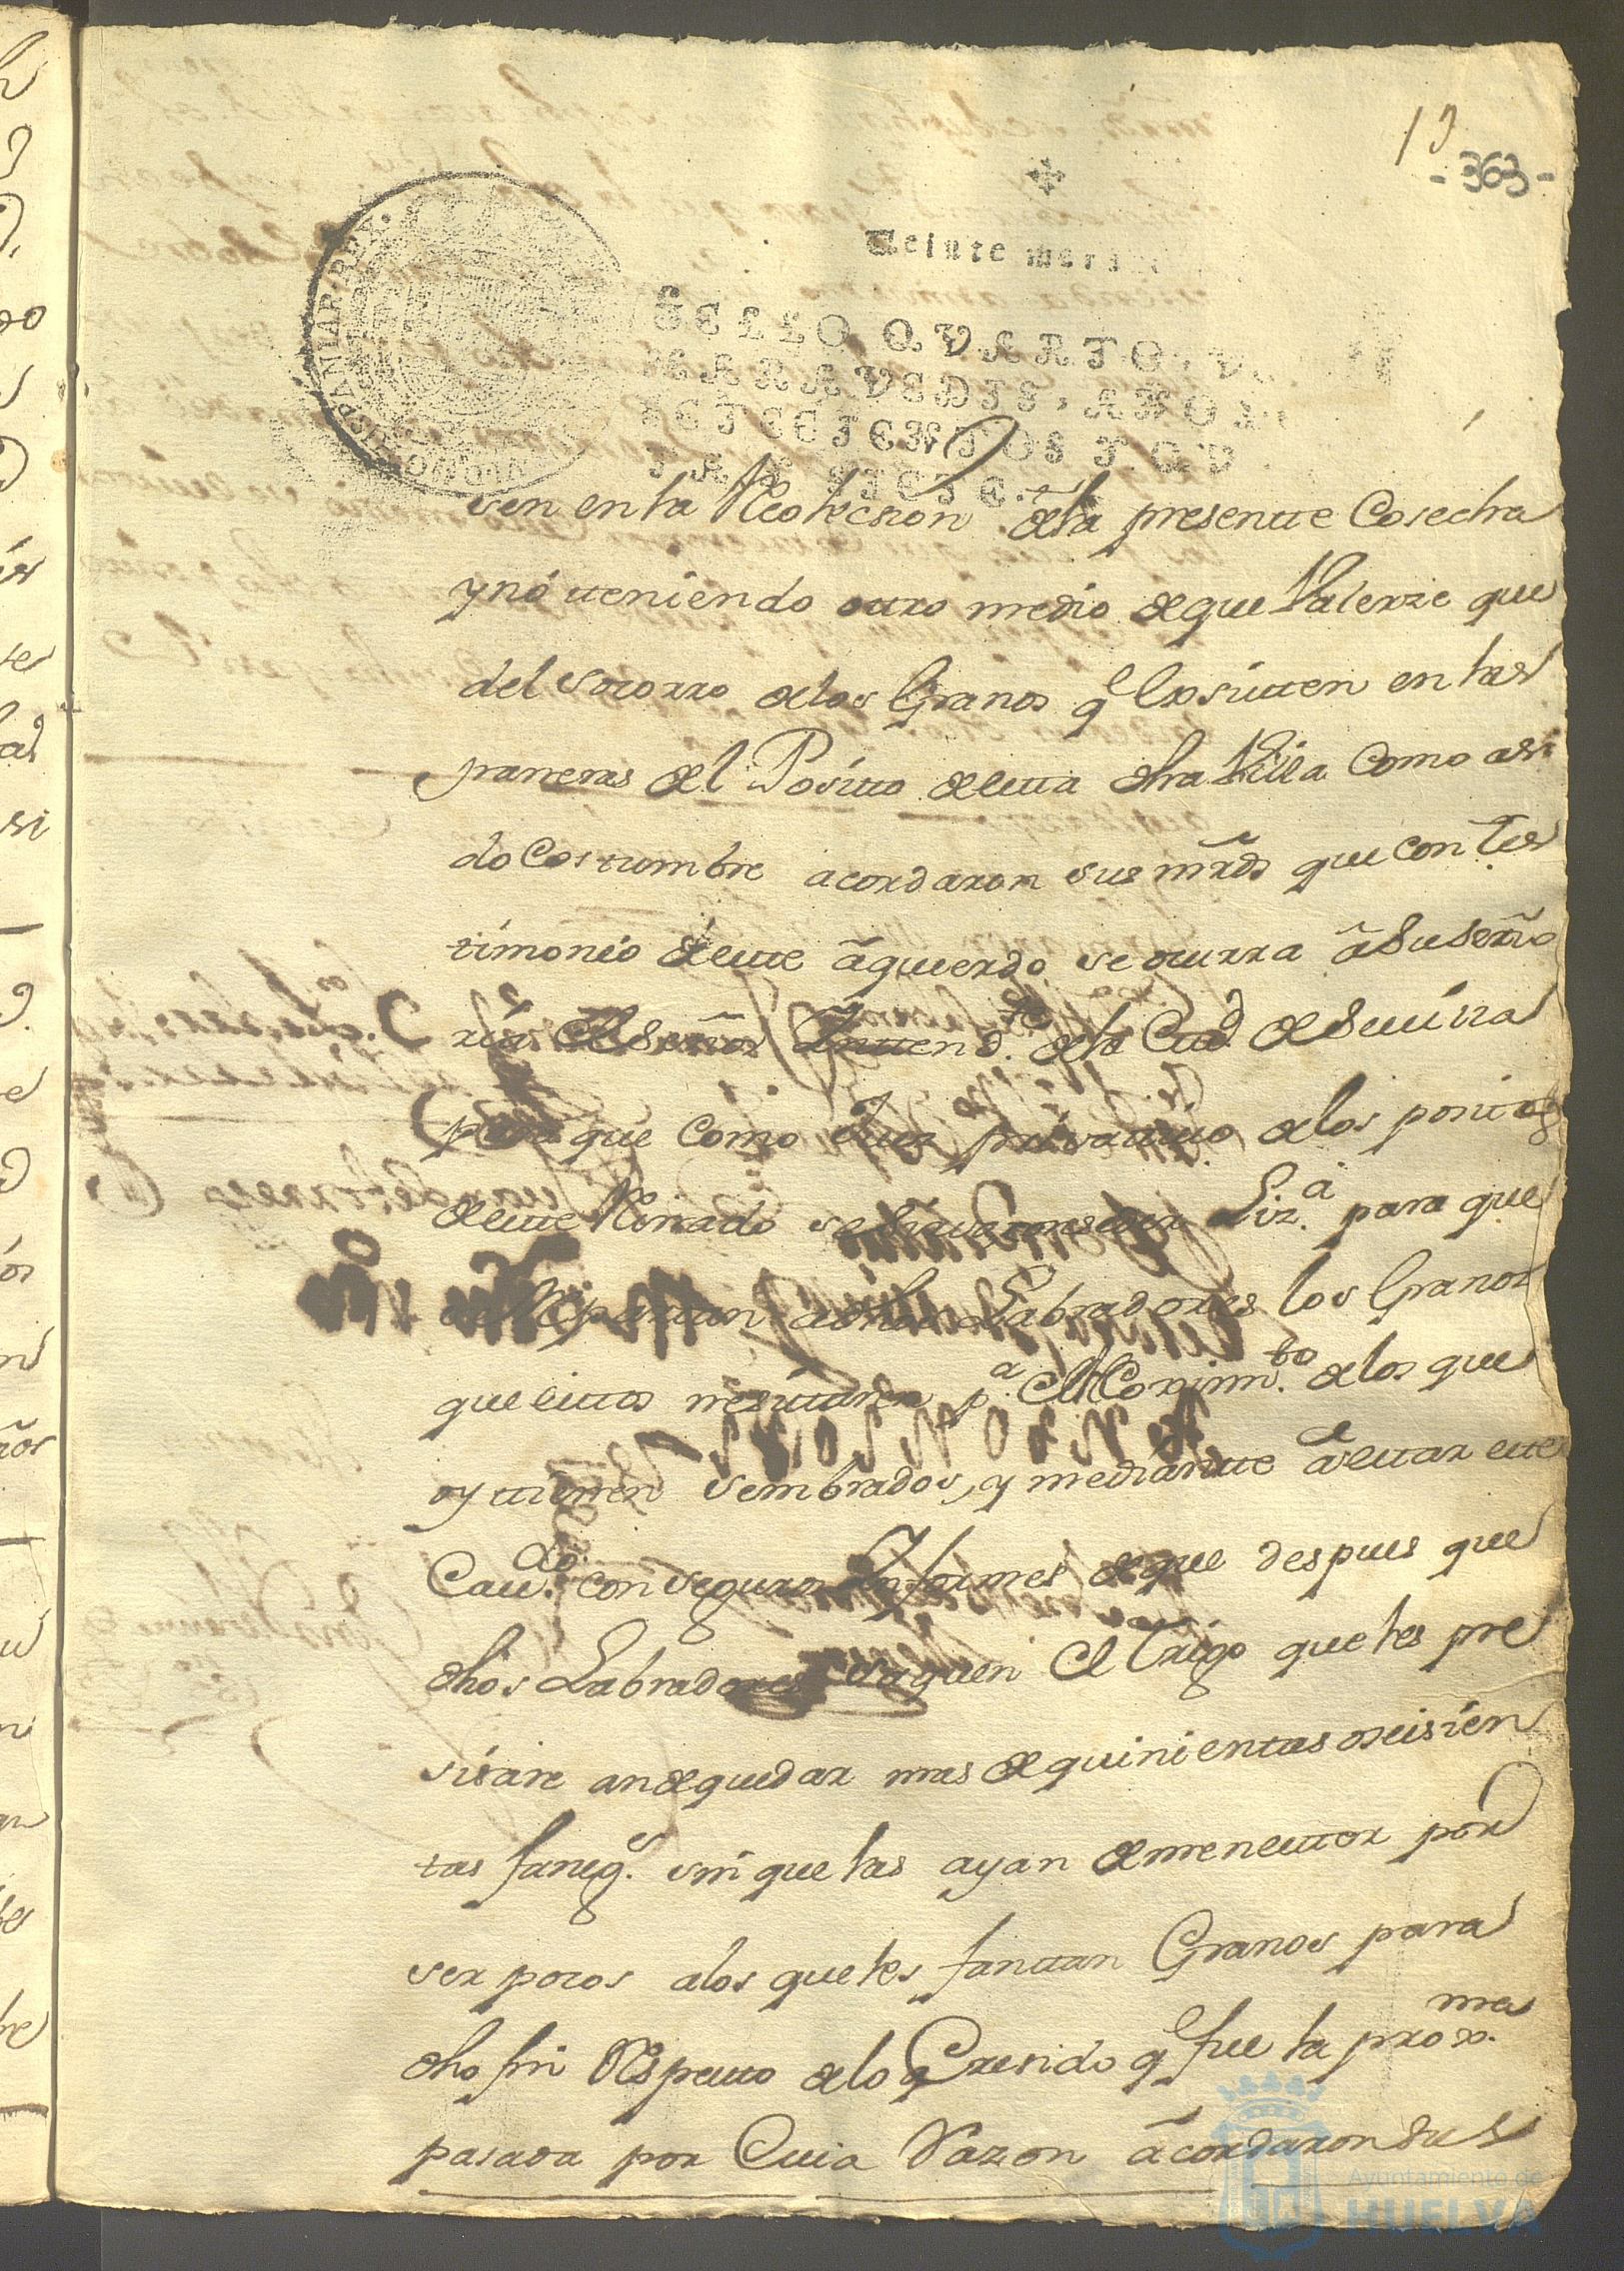 13
-363-
Veinte mara
SELLO QVARTO, V
MARAVEDIS, AÑO
SETECIENTOS Y QV
Y SIETE.
HISPANIAR·REX·
sen en la Recolecsion dela presentte Cosecha
y nó tteniendo ottro medio deque Valerze que
del socorro delos Granos q̃ Exsistten en las
paneras del Positto deestta dha Villa Como asi
do Costtumbre acordaron sus mrds que con tes
timonio deestte aquerdo se ocurra a Su señò
ria el Señor Inttendte. dela Ciud. deSevilla
para que como Juez privattivo delos positos
deestte Reinado se sirva conseder Liz.a para que
se Repartan adhos Labradores los Granos
que esttos nesesittaren p.a el Coximto. delos que
oy ttienen sembrados, y mediantte a esttar estte
Cavdo. con seguros Informes deque despues que
dhos Labradores saquen el trigo que les pre
sisare an dequedar mas dequinienttas o seisien
tas faneg.s sin que las ayan demenester por
ser pocos alos que les faltan Granos para
dho fin Respectto delo Cresido q̃ fue la proxma.
pasada por Cuia Razon acordaron Sus
Ayuntamiento de
HUELVA